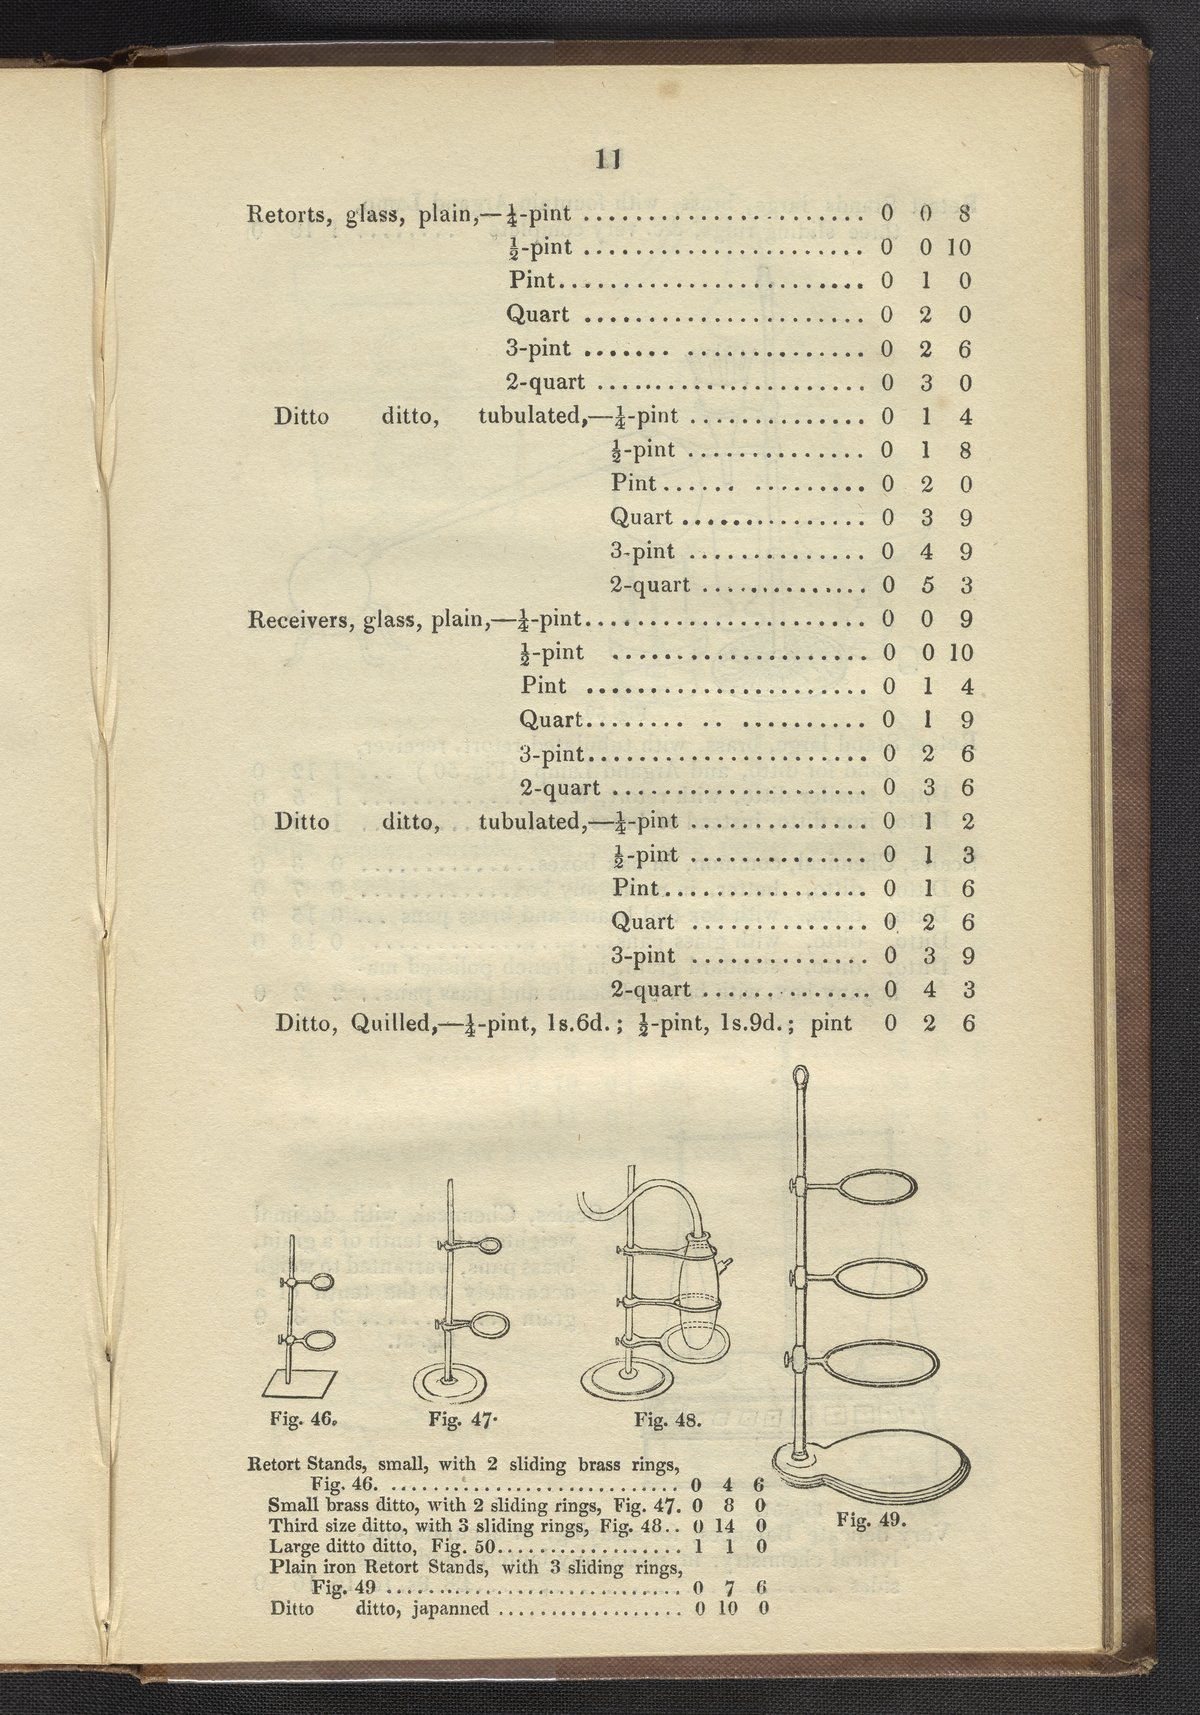 11
Retorts, glass, plain,—¼-pint ...................... 0 0 8
½-pint ...................... 0 0 10
Pint........................ 0 1 0
Quart ...................... 0 2 0
3-pint ....... .............. 0 2 6
2-quart ..................... 0 3 0
Ditto ditto, tubulated,—¼-pint .............. 0 1 4
½-pint .............. 0 1 8
Pint...... ......... 0 2 0
Quart ............... 0 3 9
3-pint .............. 0 4 9
2-quart ............. 0 5 3
Receivers, glass, plain,—¼-pint...................... 0 0 9
½-pint .................... 0 0 10
Pint ...................... 0 1 4
Quart........ .. .......... 0 1 9
3-pint...................... 0 2 6
2-quart .................... 0 3 6
Ditto ditto, tubulated,—¼-pint .............. 0 1 2
½-pint .............. 0 1 3
Pint................ 0 1 6
Quart .............. 0 2 6
3-pint .............. 0 3 9
2-quart ............. 0 4 3
Ditto, Quilled,—¼-pint, 1s.6d.; ½-pint, 1s.9d.; pint 0 2 6
Fig. 46.
Fig. 47.
Fig. 48.
Retort Stands, small, with 2 sliding brass rings,
Fig. 46. ............................ 0 4 6
Small brass ditto, with 2 sliding rings, Fig. 47. 0 8 0
Third size ditto, with 3 sliding rings, Fig. 48.. 0 14 0
Large ditto ditto, Fig. 50.................. 1 1 0
Plain iron Retort Stands, with 3 sliding rings,
Fig. 49 ............................ 0 7 6
Ditto ditto, japanned .................. 0 10 0
Fig. 49.